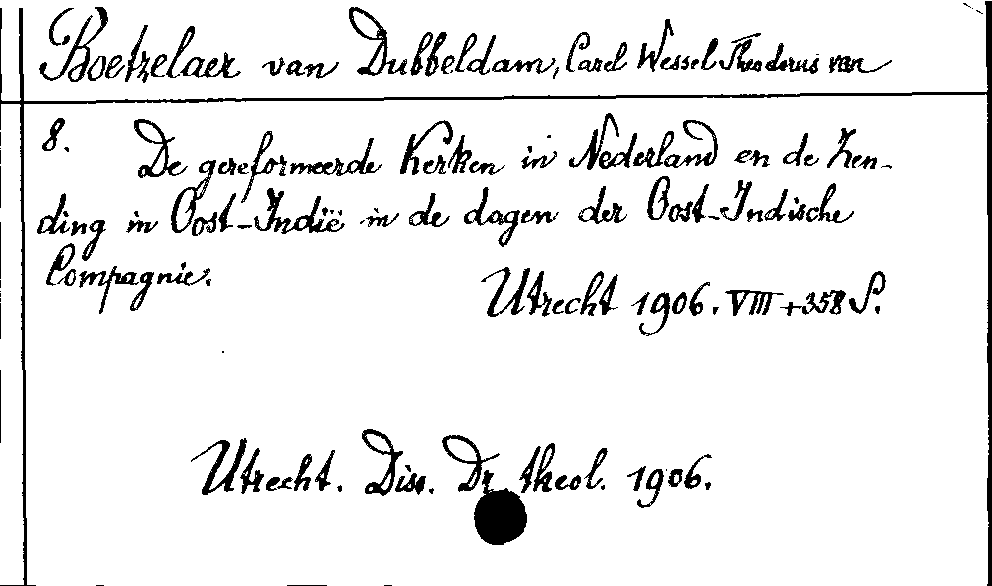 Boetzelaer van Dubbeldam, Carel Wessel Theodorus van
8. De gereformeerde Kerken in Nederland en de Zen-
ding in Oost-Indië in de dagen der Oost-Indische
Compagnie.
Utrecht 1906. VIII + 358 S.
Utrecht. Diss. Dr. theol. 1906.